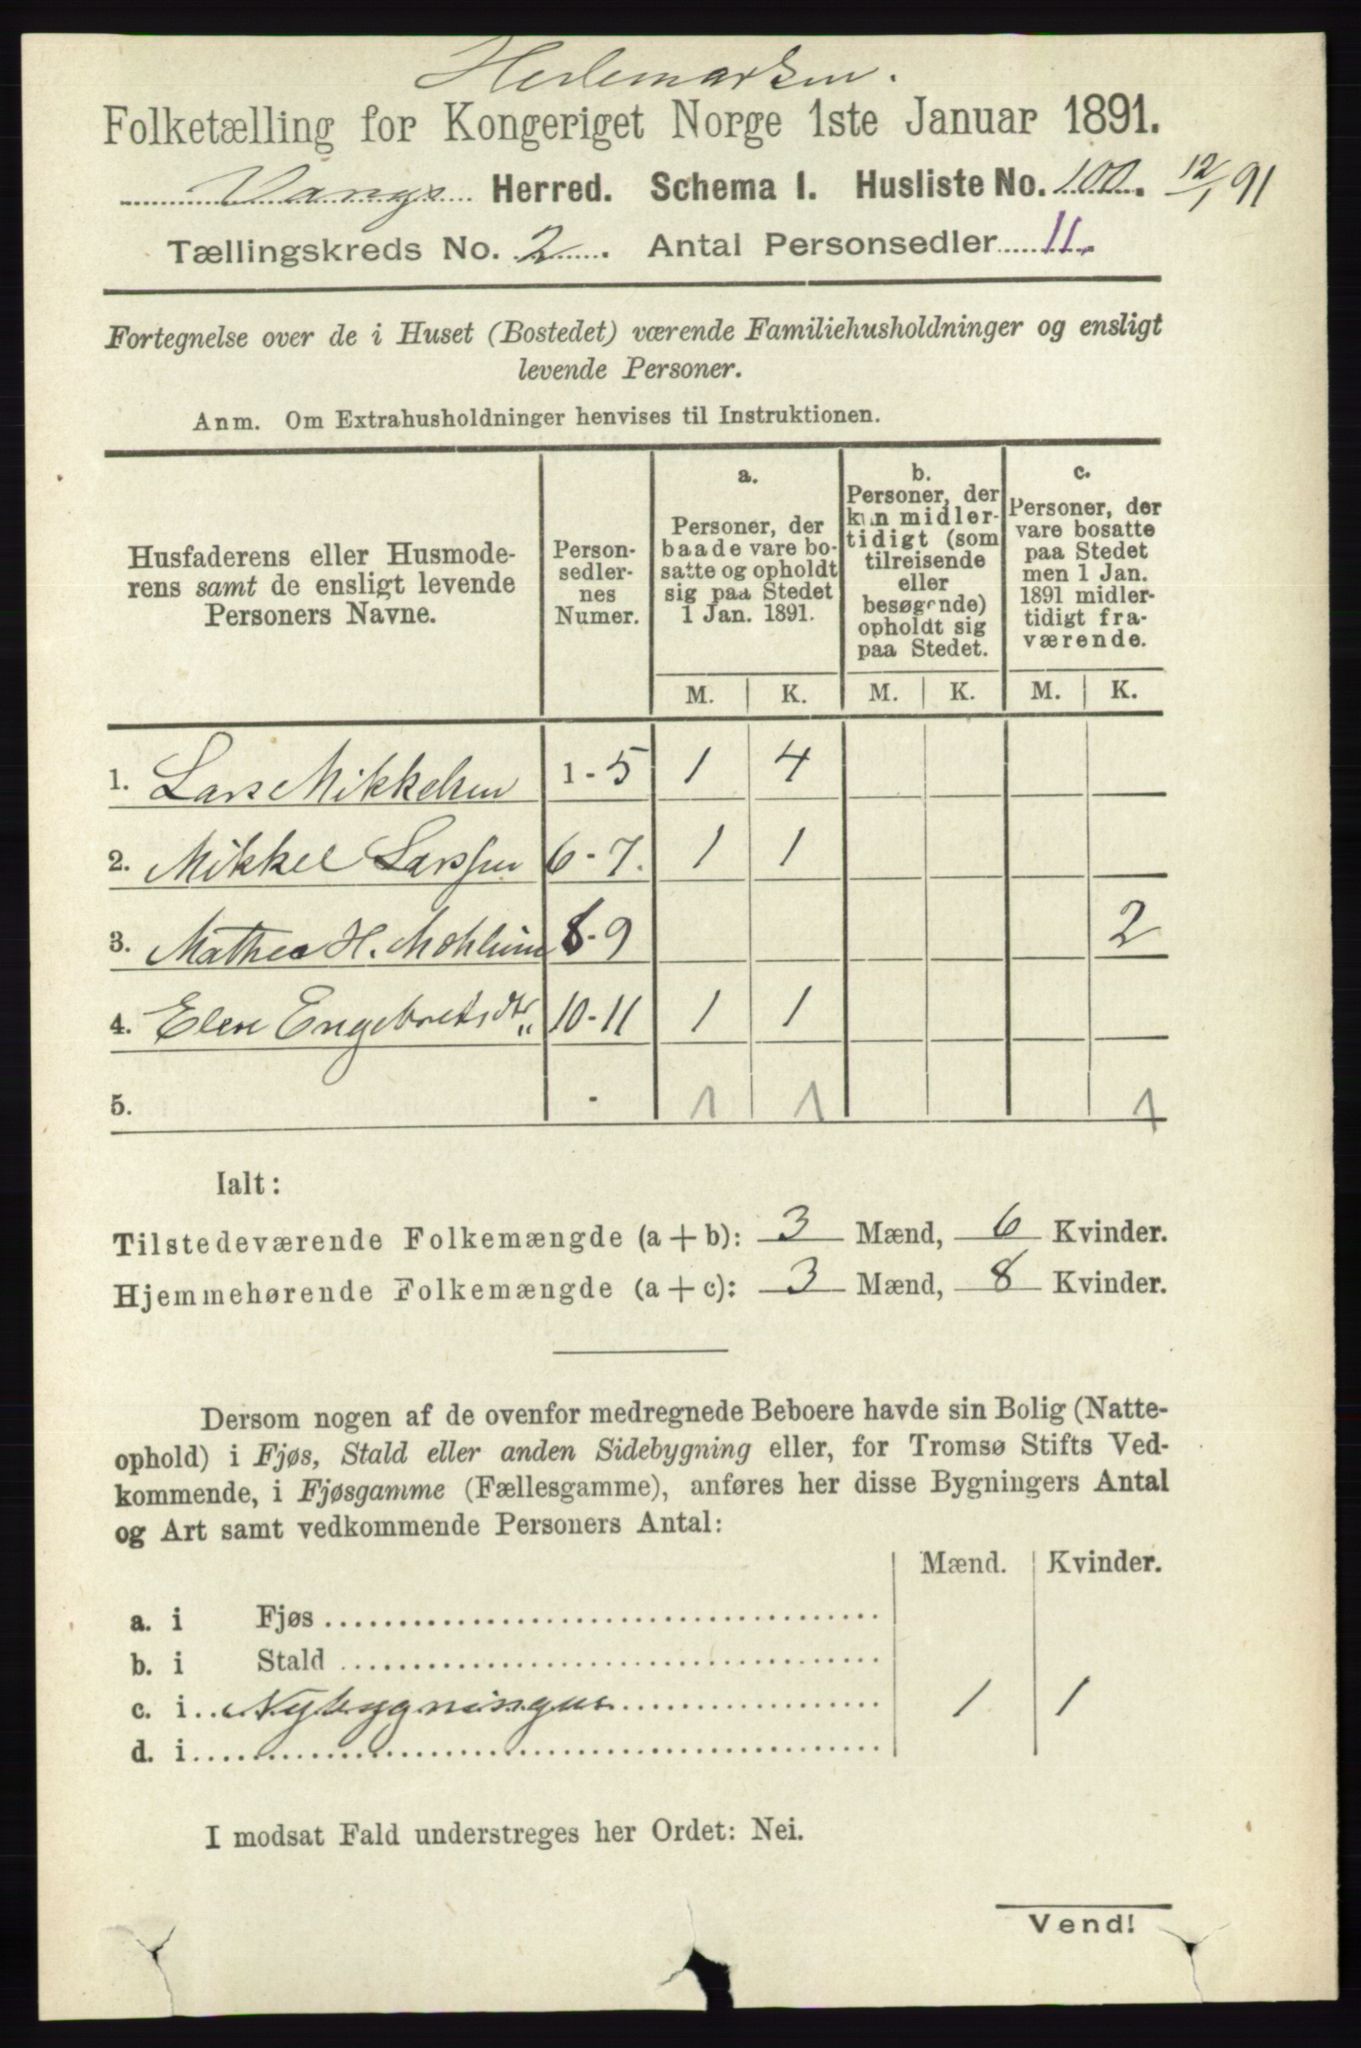 Hedemarken.
Folketælling for Kongeriget Norge 1ste Januar 1891.
Vangs Herred. Schema 1. Husliste No. 100. 12/1 91
Tællingskreds No. 2. Antal Personsedler 11.
Fortegnelse over de i Huset (Bostedet) værende Familiehusholdninger og ensligt
levende Personer.
Anm. Om Extrahusholdninger henvises til Instruktionen.
Husfaderens eller Husmode-
rens samt de ensligt levende
Personers Navne.
Person-
sedler-
nes
Numer.
a.
Personer, der
baade vare bo-
satte og opholdt
sig paa Stedet
1 Jan. 1891.
b.
Personer, der
kun midler-
tidigt (som
tilreisende
eller
besøgende)
opholdt sig
paa Stedet.
c.
Personer, der
vare bosatte
paa Stedet
men 1 Jan.
1891 midler-
tidigt fra-
værende.
M. K. M. K. M. K.
1. Lars Mikkelsen 1-5 1 4
2. Mikkel Larssen 6-7. 1 1
3. Mathea H. 8-9 2
4. Elen Engebretsdtr 10-11 1 1
5. - 1 1 1
Ialt:
Tilstedeværende Folkemængde (a+b): 3 Mænd, 6 Kvinder.
Hjemmehørende Folkemængde (a+c): 3 Mænd, 8 Kvinder.
Dersom nogen af de ovenfor medregnede Beboere havde sin Bolig (Natte-
ophold) i Fjøs, Stald eller anden Sidebygning eller, for Tromsø Stifts Ved-
kommende, i Fjøsgamme (Fællesgamme), anføres her disse Bygningers Antal
og Art samt vedkommende Personers Antal:
Mænd. Kvinder.
a. i Fjøs
b. i Stald
c. i Nybygningen 1 1
d. i
I modsat Fald understreges her Ordet: Nei.
Vend!